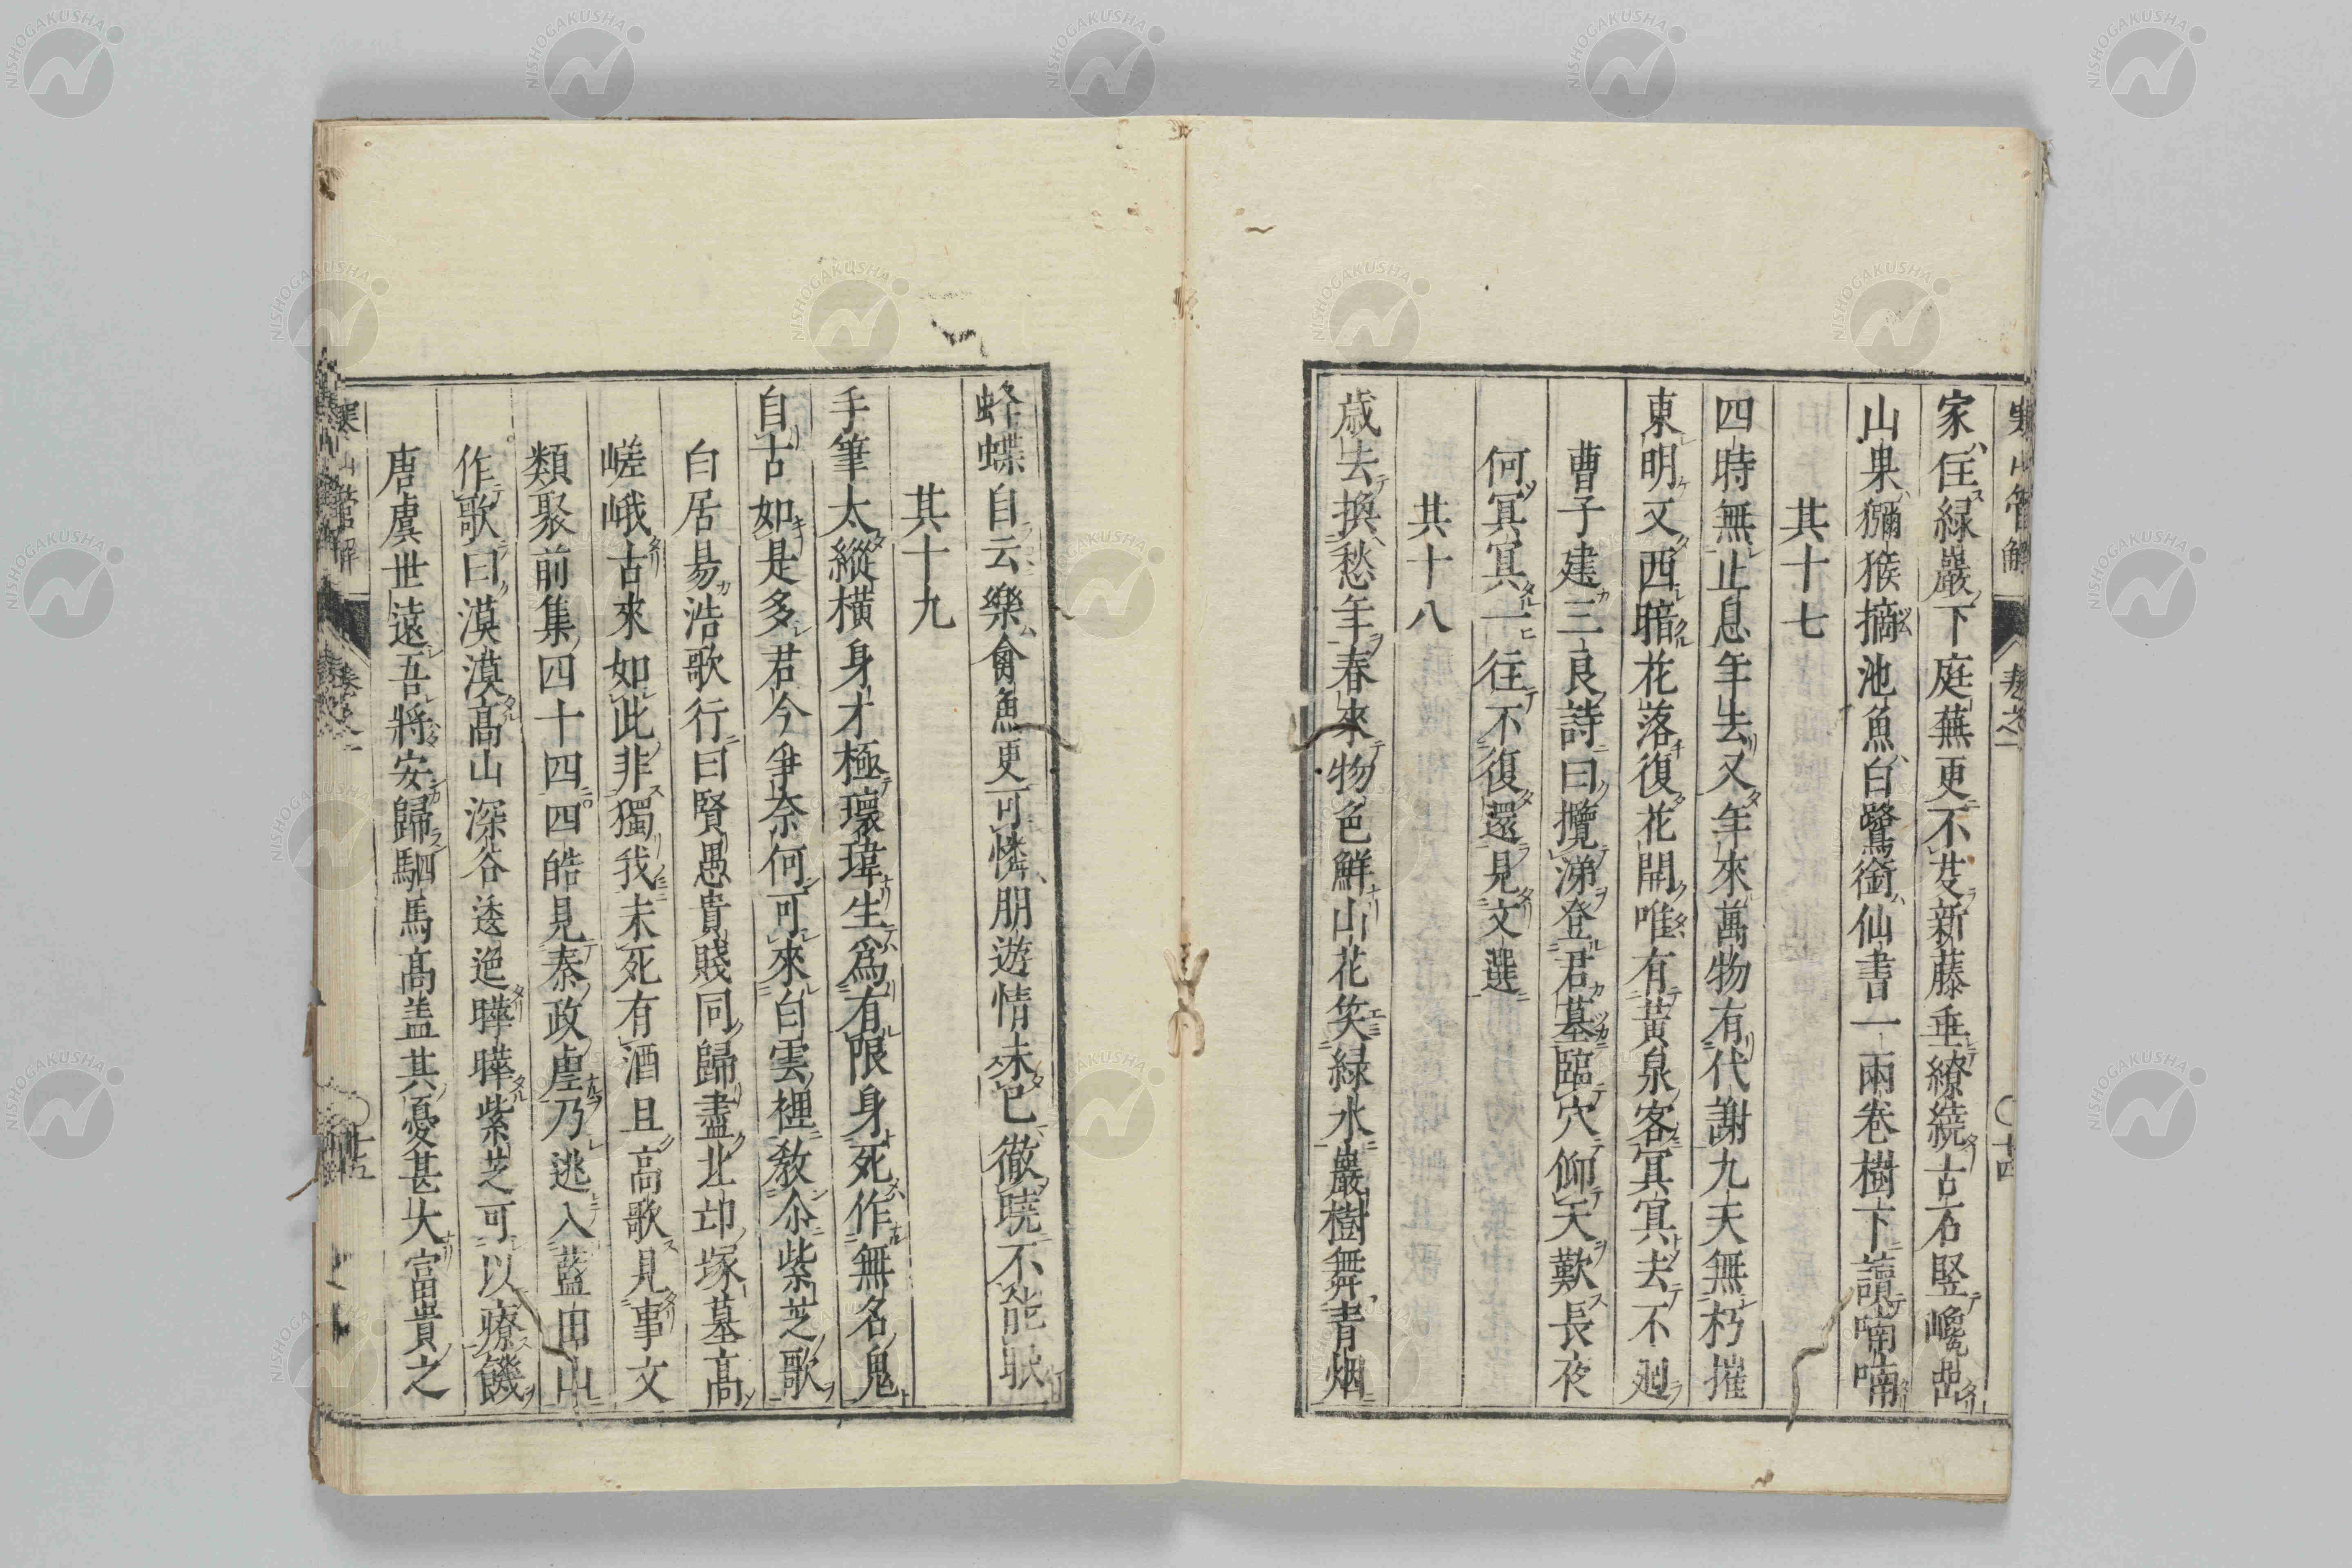 寒山管解 卷之一 〇十四
家住緑巖下庭蕪更不芟新藤垂繚繞古石竪巉嵒
山果獼猴摘池魚白鷺銜仙書一兩巻樹下讀喃喃
其十七
四時無止息年去又年來萬物有代謝九天無朽摧
東明又西暗花落復花開唯有黄泉客冥冥去不廻
曹子建三良詩曰攬涕登君墓臨穴仰天歎長夜
何冥冥一往不復還見文選
其十八
歳去換愁年春來物色鮮山花笑緑水巖樹舞青烟
蜂蝶自云樂禽魚更可憐朋遊情未已徹曉不能眠
其十九
手筆太縱横身才極瓌瑋生爲有限身死作無名鬼
自古如是多君今爭奈何可來白雲裡教尒紫芝歌
白居易浩歌行曰賢愚貴賤同歸盡北邙塚墓髙
嵯峨古來如此非獨我未死有酒且高歌見事文
類聚前集四十四四皓見秦政虐乃逃入藍田山
作歌曰漠漠髙山深谷逶迤曄曄紫芝可以療饑
唐虞世遠吾將安歸駟馬髙盖其憂甚大富貴之
寒山管解 卷之一 〇十五
NISHOGAKUSHA